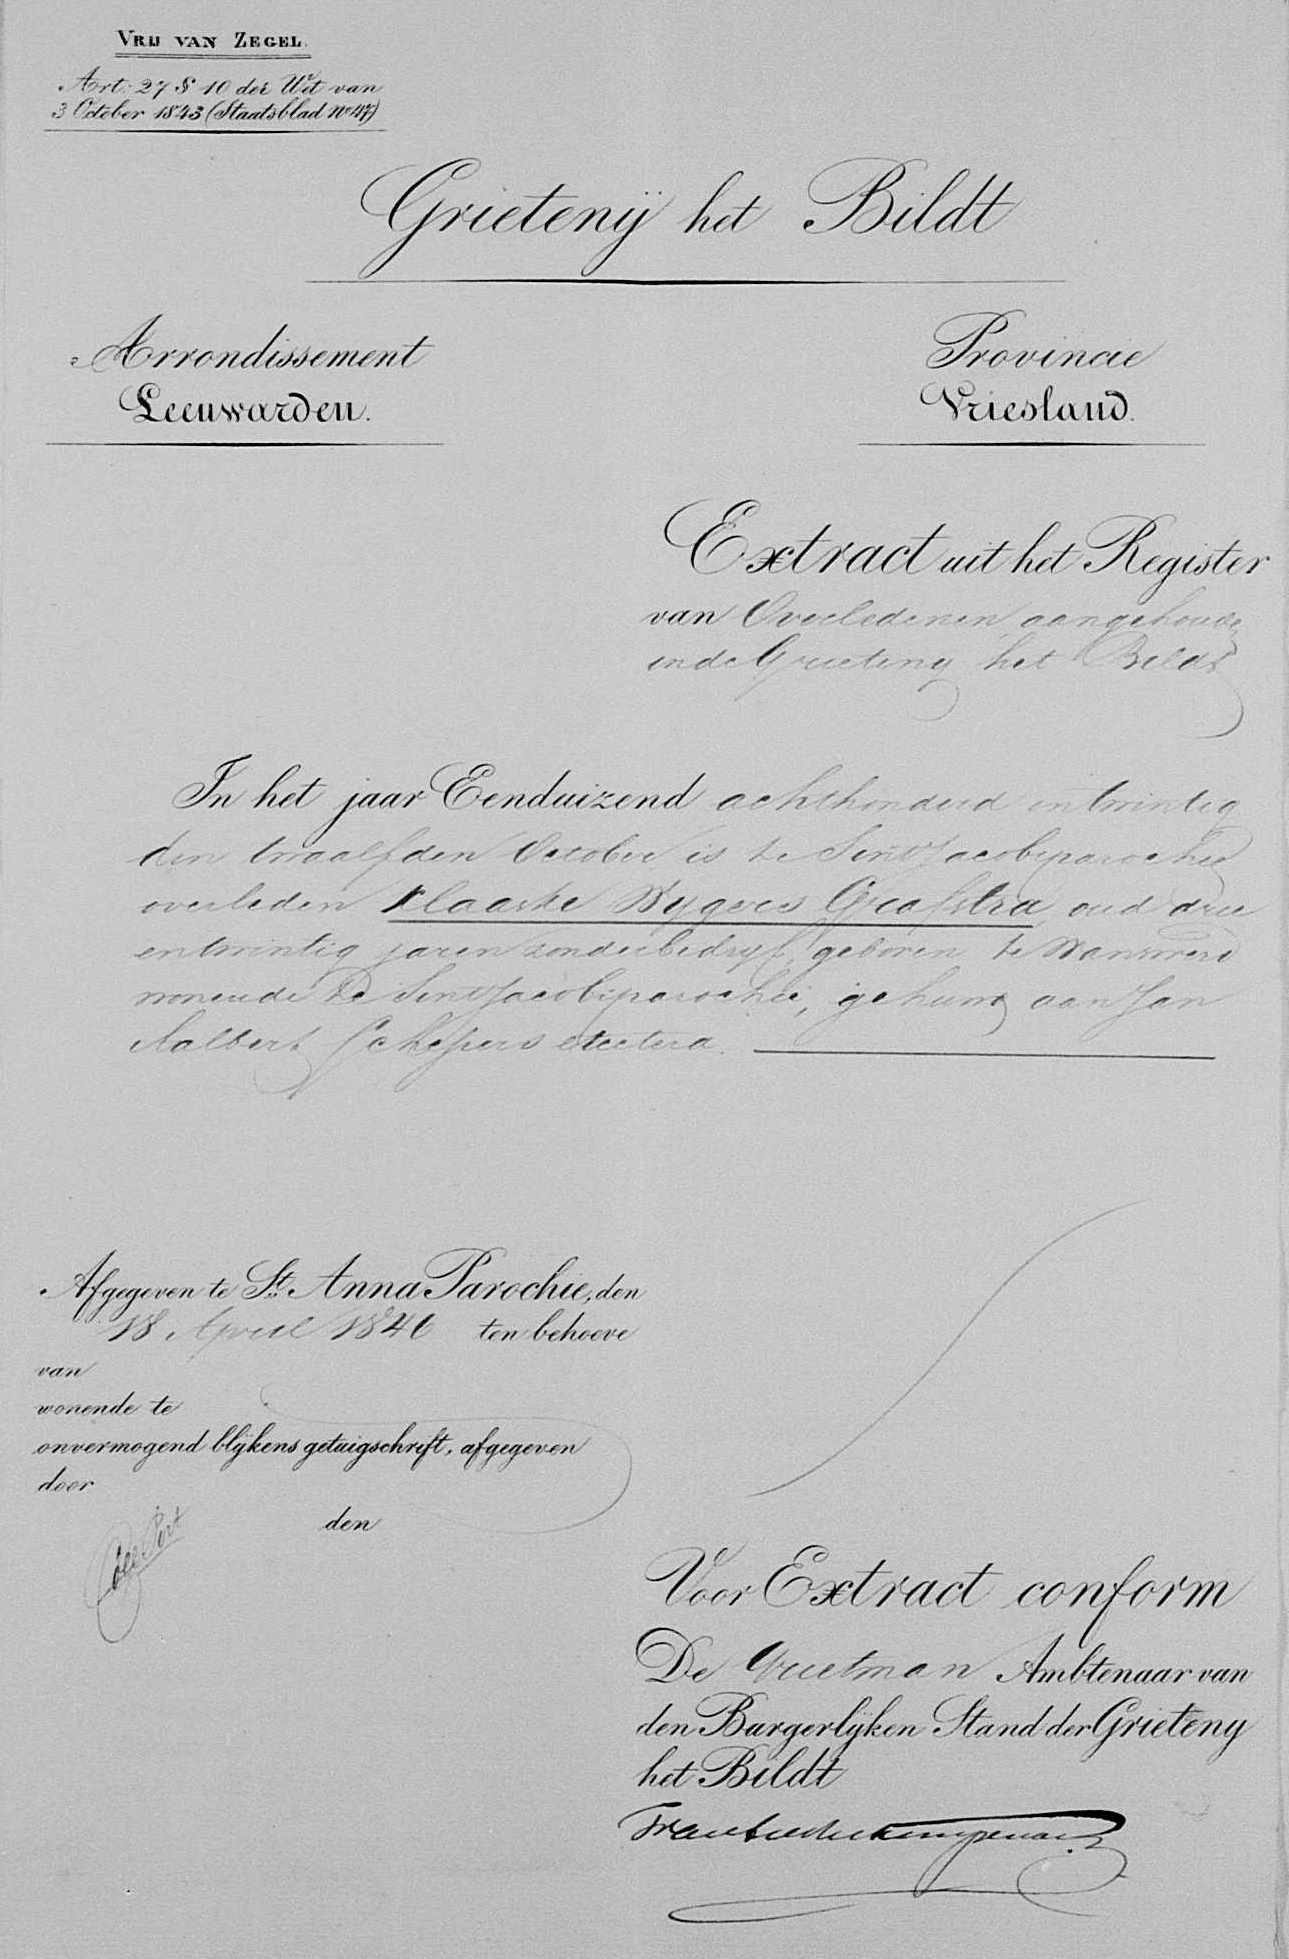 VRIJ VAN ZEGEL.
Art: 27 § 10 der Wet van
3 October 1843 (Staatsblad No 47)
Grietenij het Bildt
Arrondissement
Provincie
Leeuwarden.
Vriesland.
Extract uit het Register
van Overledenen aangehouden
in de Grieteny het Bildt
In het jaar Eenduizend achthonderd en twintig
den twaalfden October is te Sint Jacobiparochie
overleden Klaaske Wygers Graafstra, oud drie
entwintig jaren zonder bedryf, geboren te Wanswerd
wonende te Sint Jacobiparochie, gehuwd aan Jan
Aalberts Schepers etcetera.
Afgegeven te St. Anna Parochie, den
18 April 1846 ten behoeve
van
wonende te
onvermogend blijkens getuigschrift, afgegeven
door
den
Voor Extract conform
De Grietman Ambtenaar van
den Burgerlijken Stand der Grieteny
het Bildt